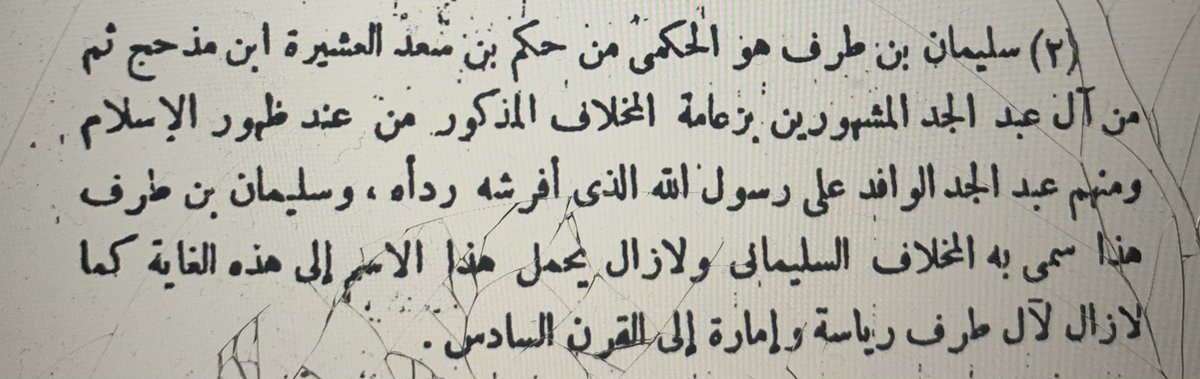 (٢) سليمان بن طرف هو الحكمى من حكم بن سعد العشيرة ابن مذحج ثم
من آل عبد الجد المشهورين بزعامة المخلاف المذكور من عند ظهور الإسلام
ومنهم عبد الجد الوافد على رسول الله الذى أفرشه ردأه ، وسليمان بن طرف
هذا سمى به المخلاف السليمانى ولازال يحمل هذا الاسم إلى هذه الغاية كما
لازال لآل طرف رياسة وإمارة إلى القرن السادس .